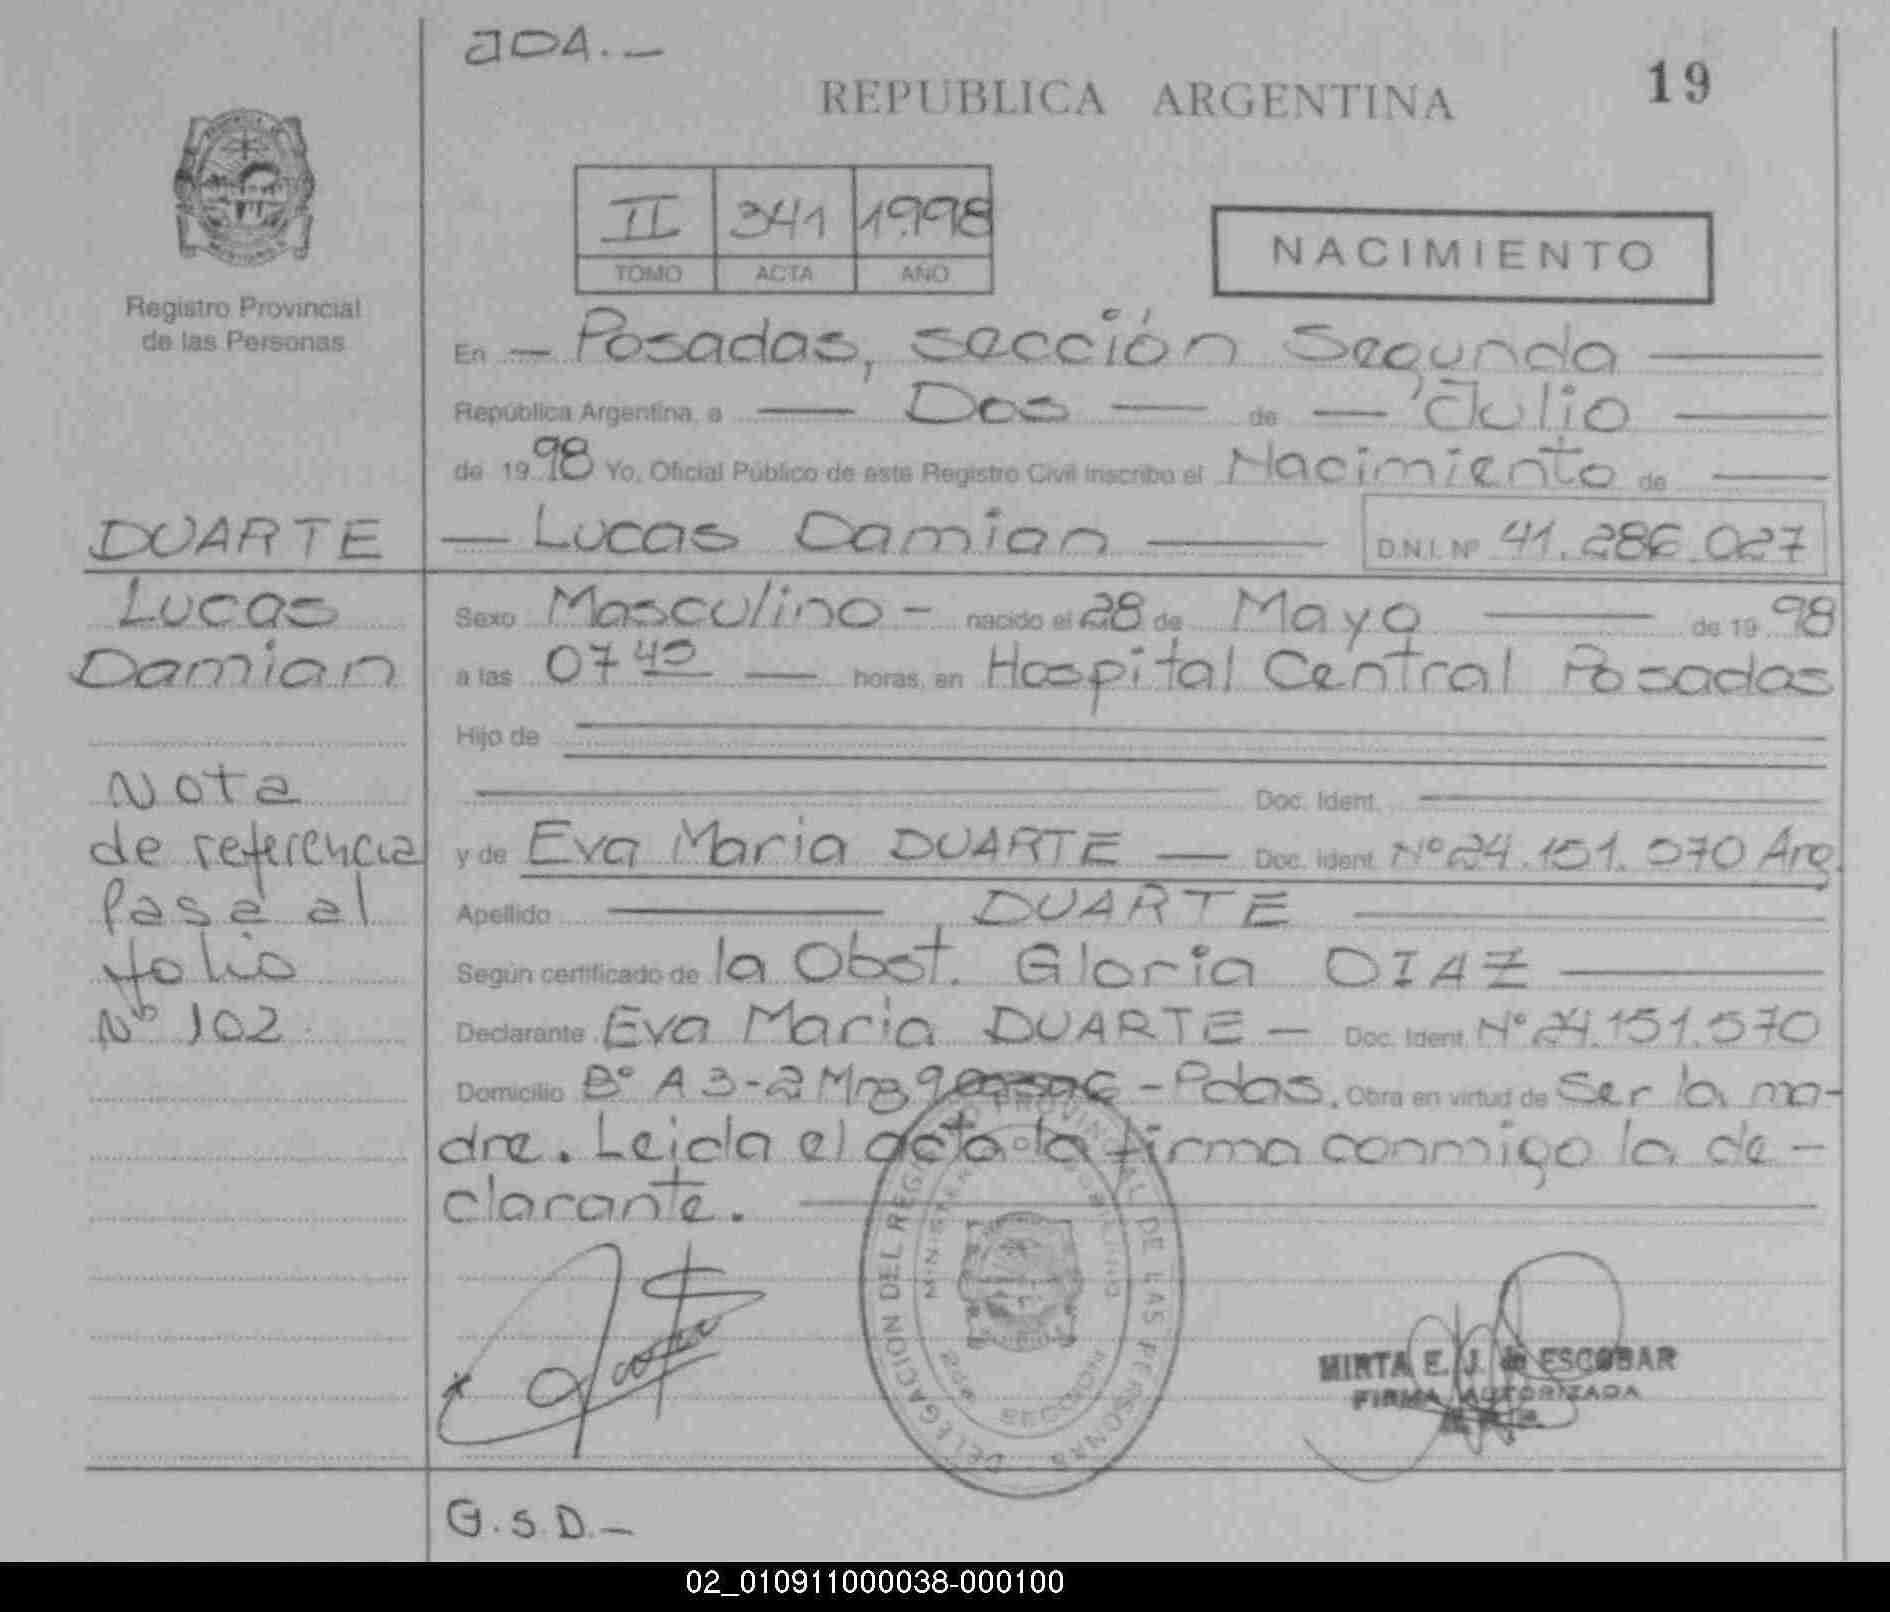 JDA.-
REPUBLICA ARGENTINA
19
II 341 1998
TOMO ACTA AÑO
NACIMIENTO
Registro Provincial
de las Personas
En - Posadas, sección Segunda
República Argentina, a Dos de Julio
de 1998 Yo, Oficial Público de este Registro Civil inscribo el Nacimiento de
DUARTE
Lucas
Damian
Nota
de referencia
Pasa al
folio
Nº 102
Lucas Damian D.N.I. Nº 41.286.027
Sexo Masculino - nacido el 28 de Mayo de 1998
a las 07 45 horas, en Hospital Central Posadas
Hijo de
Doc. Ident.
y de Eva Maria DUARTE - Doc. Ident. Nº 24.151.570 Arg.
Apellido DUARTE
Según certificado de la Obst. Gloria DIAZ
Declarante Eva Maria DUARTE - Doc. Ident. Nº 24.151.570
Domicilio Bº A 3-2 Mz 9 - Pdas. Obra en virtud de Ser la ma-
dre. Leida el acta la firma conmigo la de-
clarante.
DELEGACION DEL REGISTRO PROVINCIAL DE LAS PERSONAS
MINISTERIO GOBIERNO
SECCION
MIRTA E. J. de ESCOBAR
FIRMA AUTORIZADA
G.S.D.-
02_010911000038-000100